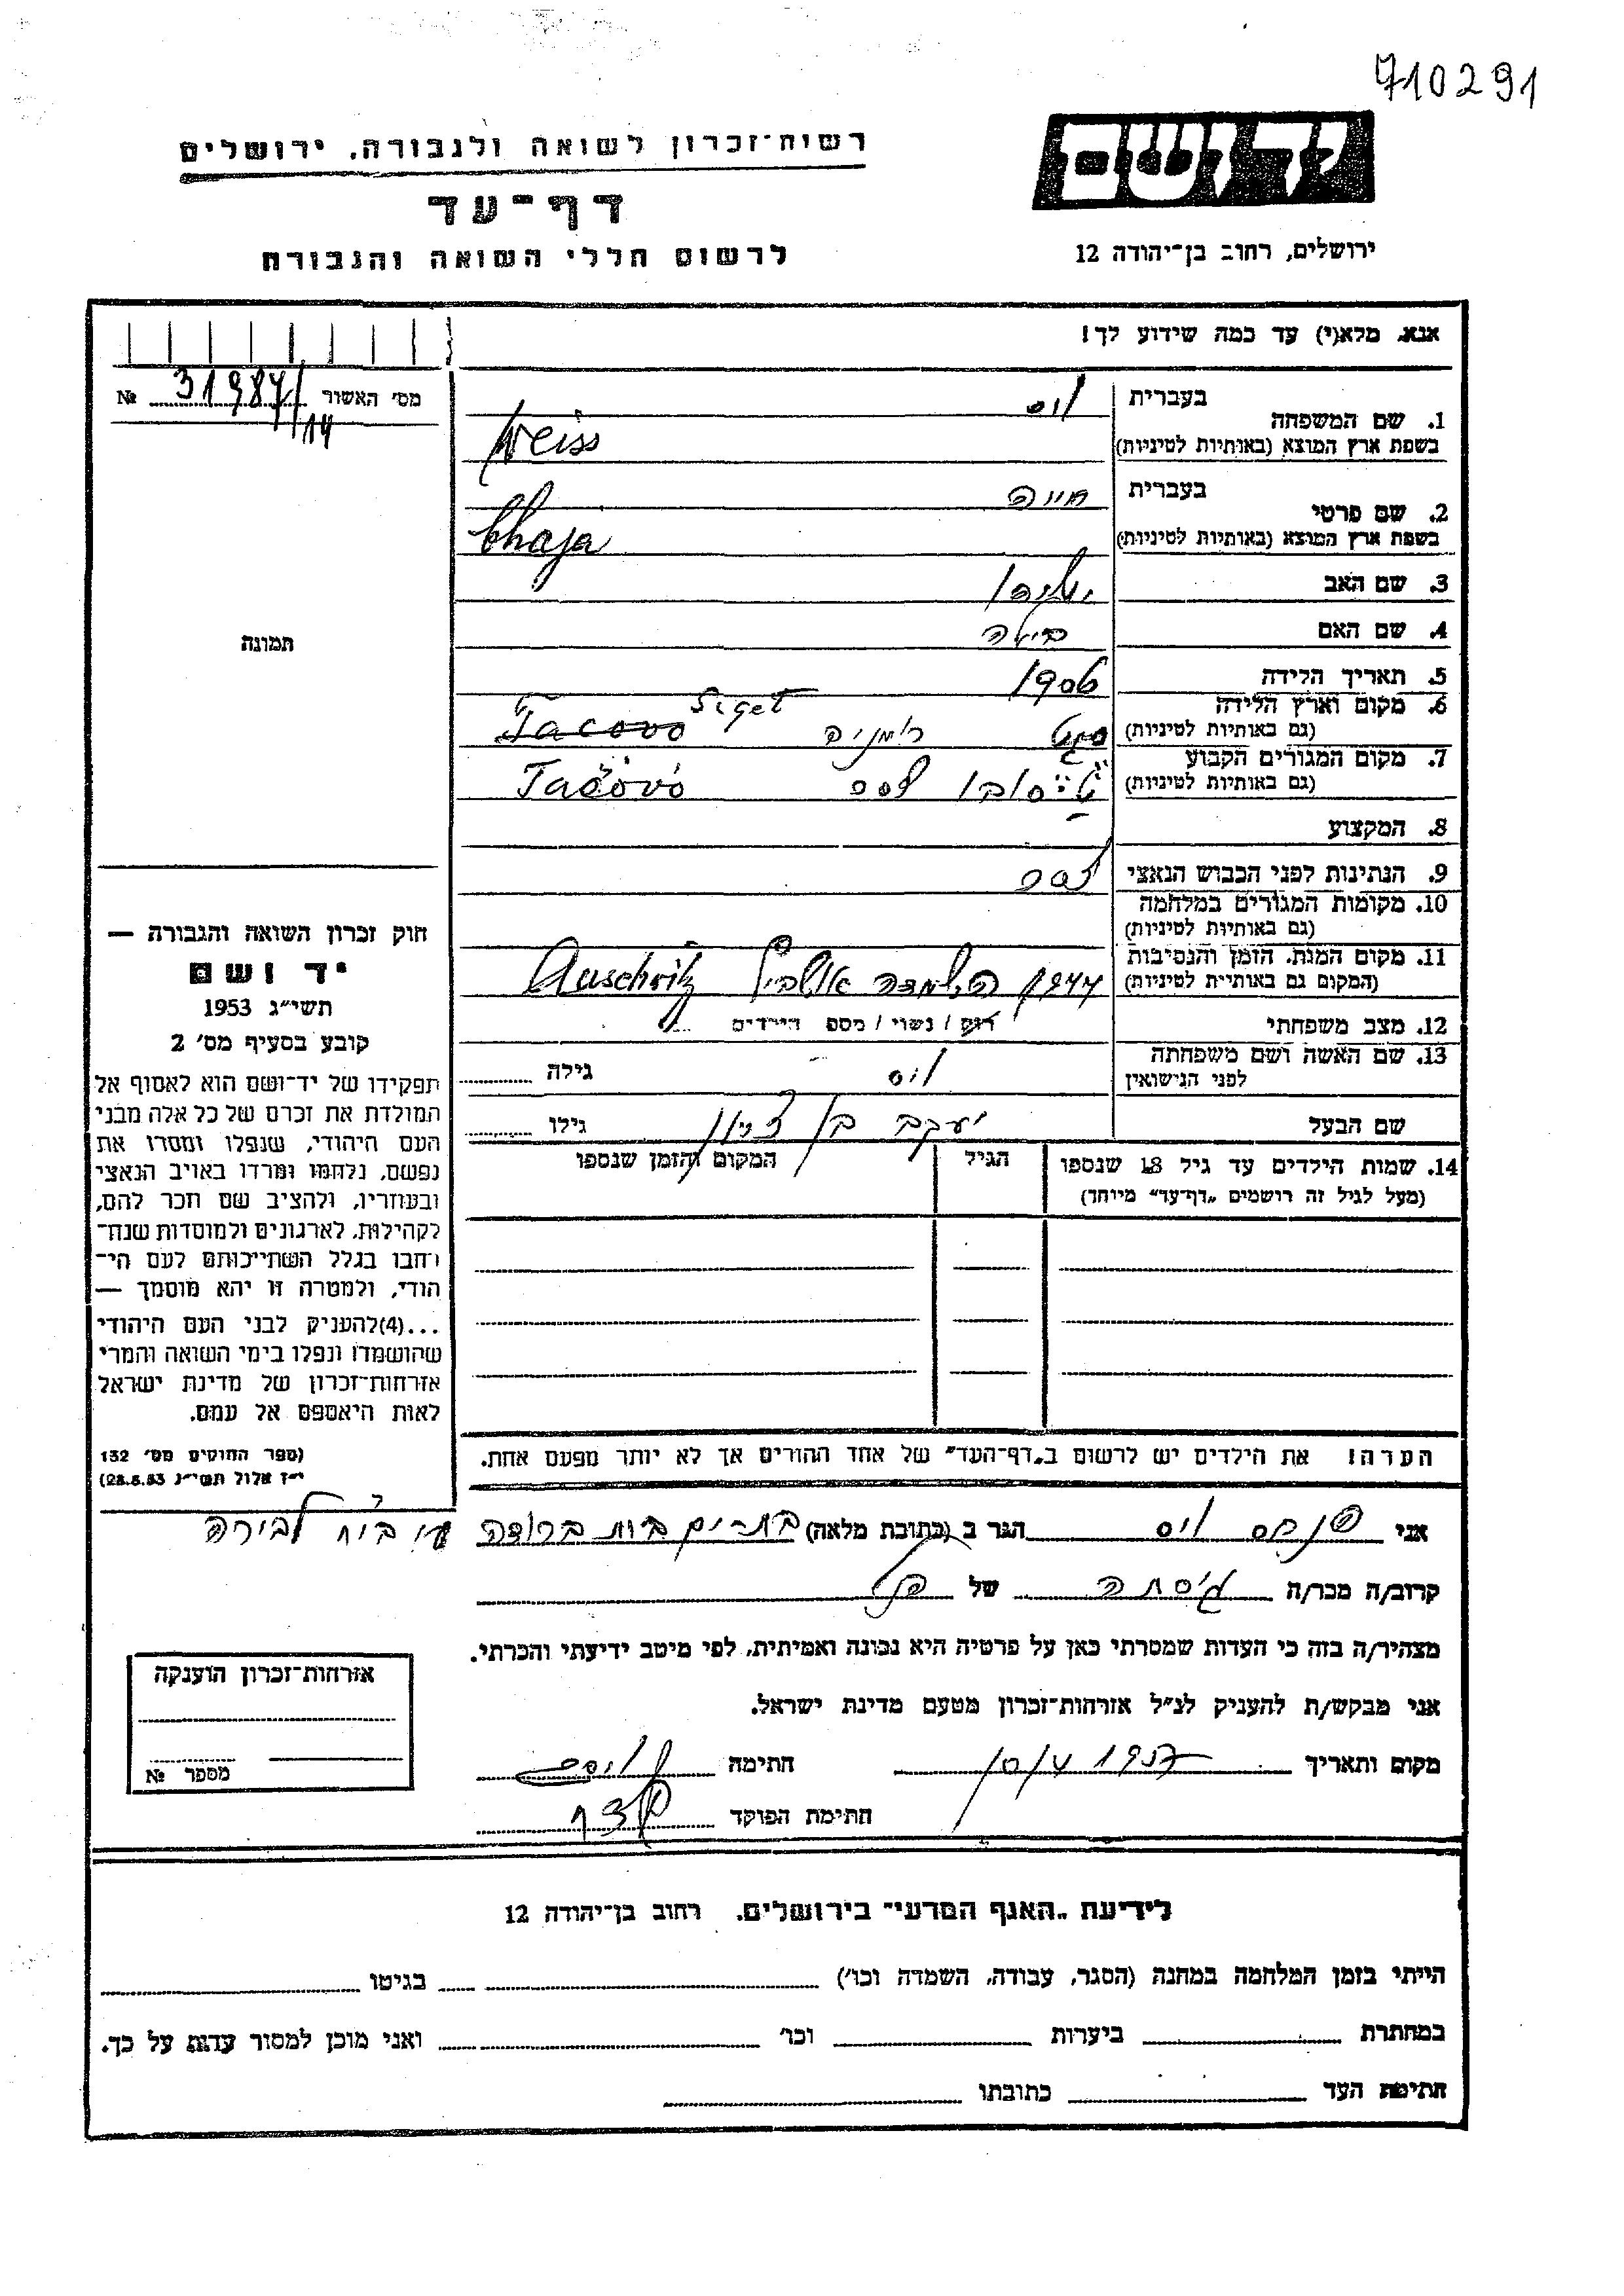 710291
יד ושם
ירושלים, רחוב בן־יהודה 12
רשות־זכרון לשואה ולגבורה, ירושלים
דף־עד
לרשום חללי השואה והגבורה
אנא, מלא(י) עד כמה שידוע לך!
מס׳ האשור 31987/14 №
1. שם המשפחה בעברית וייס
בשפת ארץ המוצא (באותיות לטיניות) Weiss
2. שם פרטי בעברית חייה
בשפת ארץ המוצא (באותיות לטיניות) Chaja
3. שם האב
4. שם האם
5. תאריך הלידה 1906
6. מקום וארץ הלידה
(גם באותיות לטיניות) סיגט רומניה Siget Tacovo
7. מקום המגורים הקבוע
(גם באותיות לטיניות) Tačovo
8. המקצוע
9. הנתינות לפני הכבוש הנאצי
10. מקומות המגורים במלחמה
(גם באותיות לטיניות)
11. מקום המות, הזמן והנסיבות
(המקום גם באותיות לטיניות) 1944 הושמדה Auschwitz
12. מצב משפחתי רווק / נשוי / מספ הילדים
13. שם האשה ושם משפחתה
לפני הנישואין וייס גילה
שם הבעל יעקב בן ציון גילו
14. שמות הילדים עד גיל 18 שנספו
(מעל לגיל זה רושמים „דף־עד״ מיוחד)
הגיל
המקום והזמן שנספו
הערה: את הילדים יש לרשום ב„דף־העד״ של אחד ההורים אך לא יותר מפעם אחת.
תמונה
חוק זכרון השואה והגבורה —
יד ושם
תשי״ג 1953
קובע בסעיף מס׳ 2
תפקידו של יד־ושם הוא לאסוף אל
המולדת את זכרם של כל אלה מבני
העם היהודי, שנפלו ומסרו את
נפשם, נלחמו ומרדו באויב הנאצי
ובעוזריו, ולהציב שם וזכר להם,
לקהילות, לארגונים ולמוסדות שנח־
רבו בגלל השתייכותם לעם הי־
הודי, ולמטרה זו יהא מוסמך —
...(4)להעניק לבני העם היהודי
שהושמדו ונפלו בימי השואה והמרי
אזרחות־זכרון של מדינת ישראל
לאות היאספם אל עמם.
(ספר החוקים מס׳ 132
י״ז אלול תשי״ג 28.8.53)
אני פנחס וייס הגר ב (כתובת מלאה) בת ים
קרוב/ה מכר/ה גיסתה של הנ״ל
מצהיר/ה בזה כי העדות שמסרתי כאן על פרטיה היא נכונה ואמיתית, לפי מיטב ידיעתי והכרתי.
אני מבקש/ת להעניק לנ״ל אזרחות־זכרון מטעם מדינת ישראל.
מקום ותאריך חתימה
חתימת הפוקד
אזרחות־זכרון הוענקה
מספר №
לידיעת „האגף המדעי״ בירושלים, רחוב בן־יהודה 12
הייתי בזמן המלחמה במחנה (הסגר, עבודה, השמדה וכו׳) בגיטו
במחתרת ביערות וכו׳ ואני מוכן למסור עדות על כך.
חתימת העד כתובתו